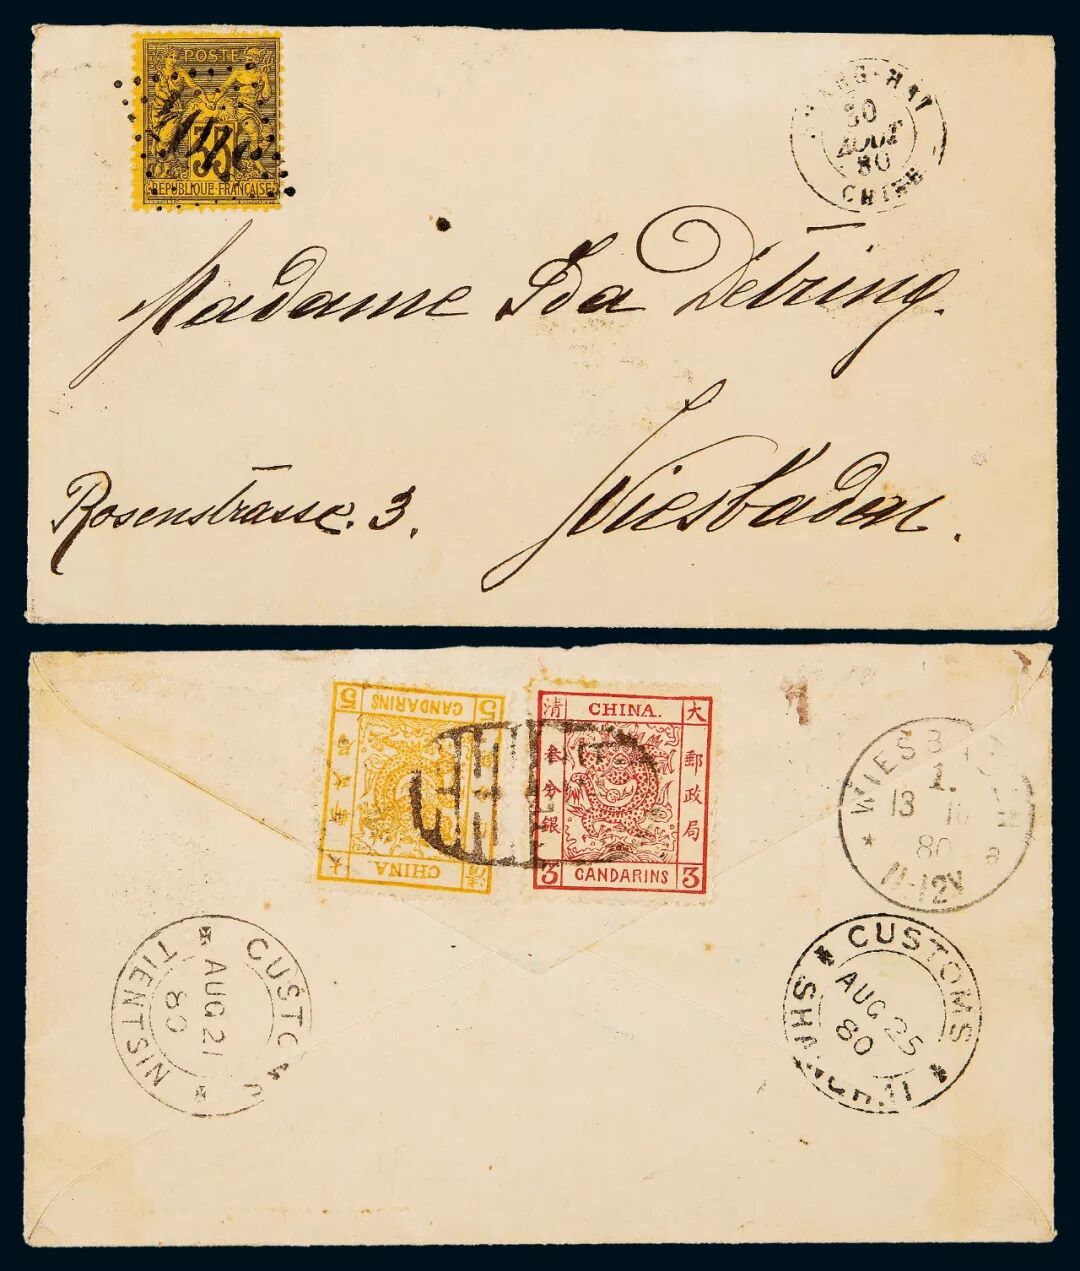 POSTE
35
REPUBLIQUE FRANCAISE
SHANG-HAI
30
AOUT
80
CHINE
Madame Ida Detring.
Wiesbaden.
Rosenstrasse. 3.
5 CANDARINS 5
郵政局
大 CHINA. 清
清 CHINA. 大
叁分銀
郵政局
3 CANDARINS 3
WIESB
1.
13 10
80
11-12V
CUSTOMS
AUG 21
80
TIENTSIN
CUSTOMS
AUG 25
80
SHANGHAI